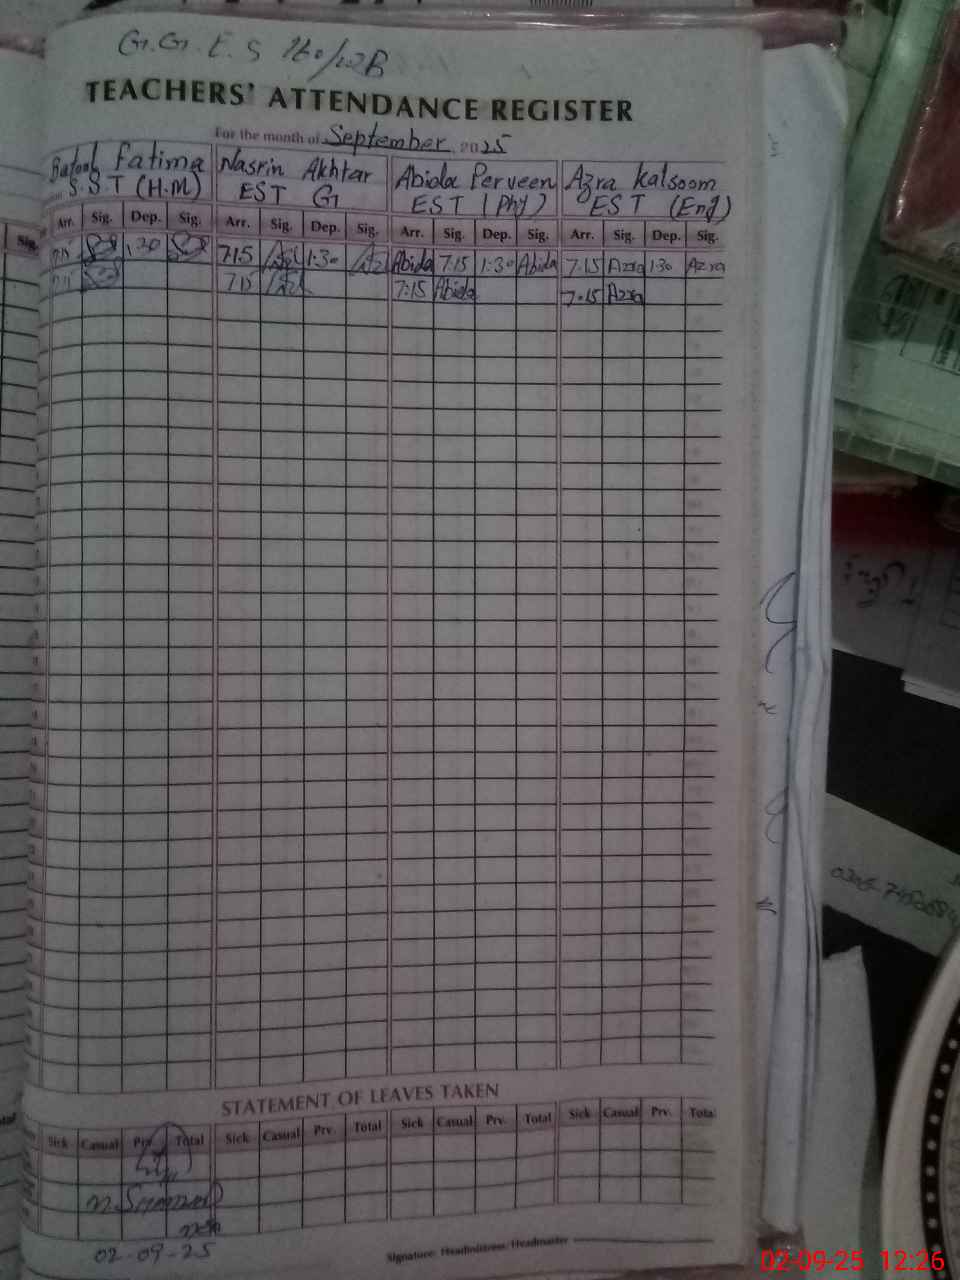 G.G.E.S 160/12B
TEACHERS' ATTENDANCE REGISTER
For the month of September 2025
Batool Fatima Nasrin Akhtar Abida Perveen Azra Kalsoom
S.S.T (H.M) EST G EST (Phy) EST (Eng)
Sig. Arr. Sig. Dep. Sig. Arr. Sig. Dep. Sig. Arr. Sig. Dep. Sig. Arr. Sig. Dep. Sig.
7:15 1:30 7:15 1:30 Abida 7:15 1:30 Abida 7:15 Azra 1:30 Azra
7:15 7:15 7:15 Abida 7:15 Azra
STATEMENT OF LEAVES TAKEN
Sick Casual Prv. Total Sick Casual Prv. Total Sick Casual Prv. Total Sick Casual Prv. Tota
02-09-25
Signature: Headmistress/Headmaster
02-09-25 12:26